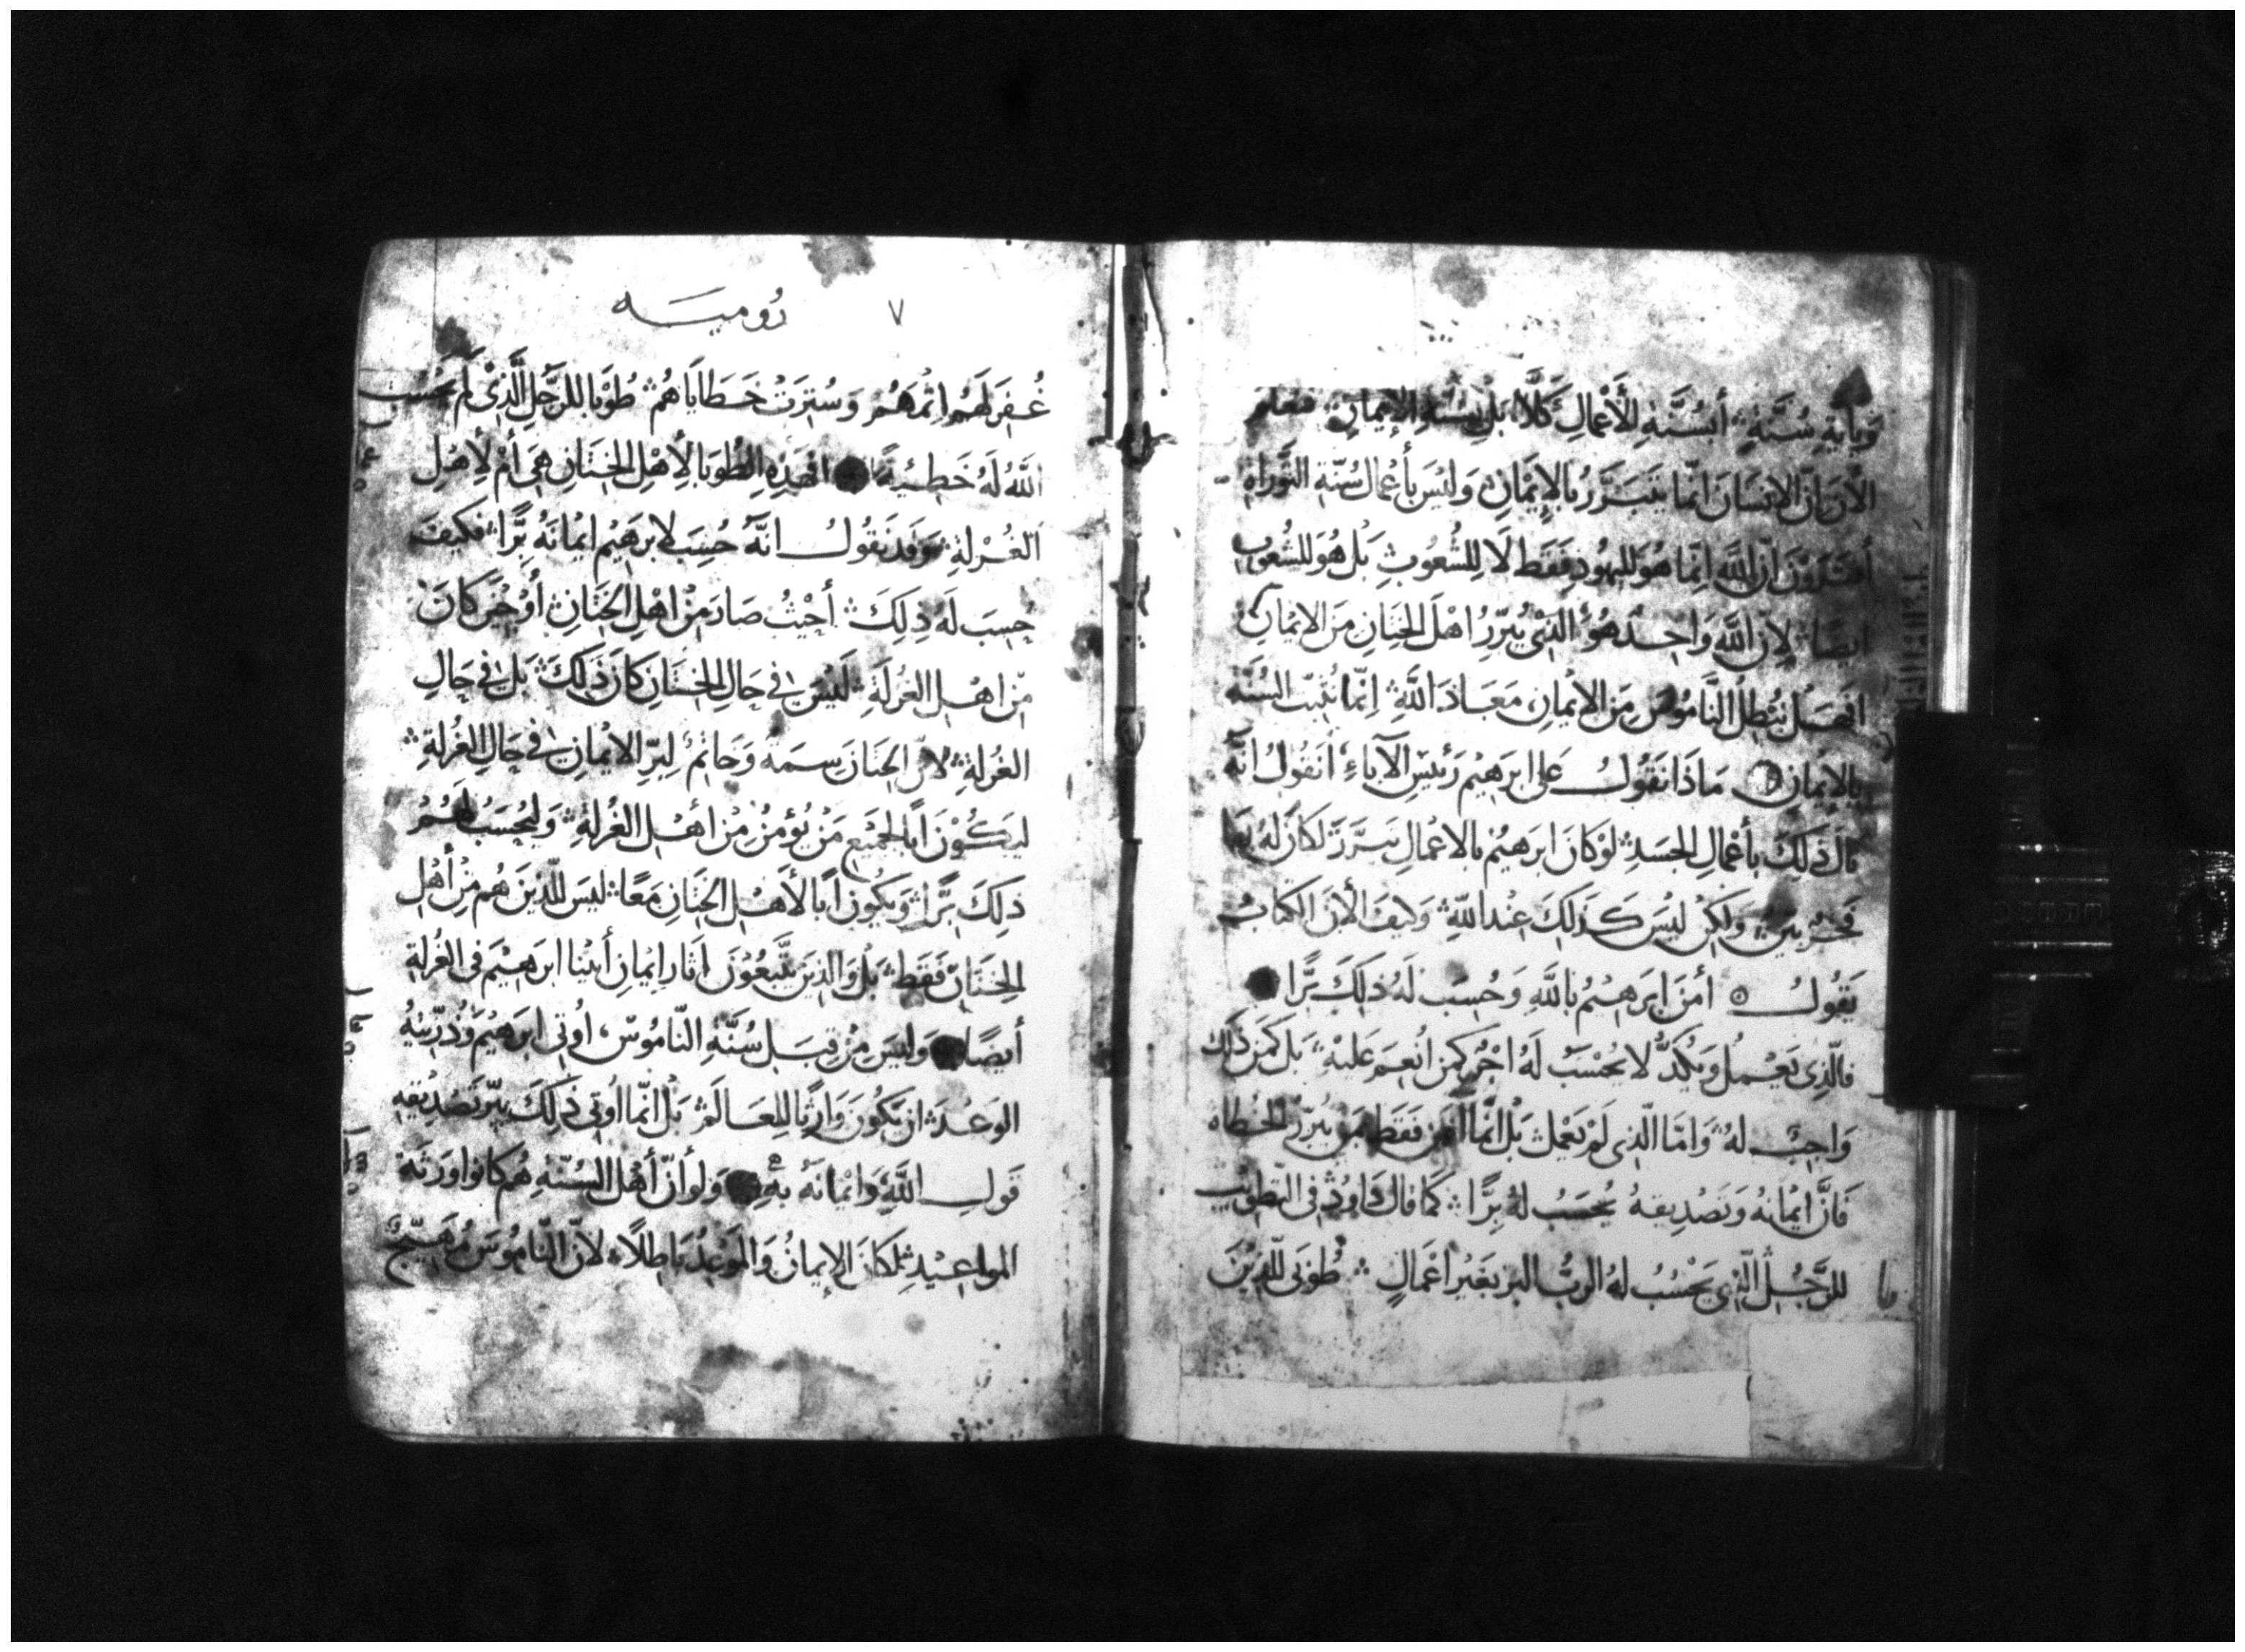 وَبأيةِ سُنَّةٍ أبسُنَّةِ الأَعْمالِ كَلَّا بَل بِسُنَّةِ الإيمانِ فنعلم
الآنَ انّ الانسَانَ انّما يتَبَرَّرُ بالإيمْانِ وَليْسَ بأعْمال سُنّةِ التَّوراةِ
أفتَرَوْنَ انّ اللَّه اِنّما هوَ لليَهُودِ فَقَط لَا لِلشُّعُوبِ بَل هُوَ للشّعُوبِ
ايضًا لِانّ اللَّه وَاحِدٌ هُوَ الّذِي يُبَرّرُ اهْلَ الخِتَانِ مِنَ الايْمانِ
افهَل نُبْطِلُ النَّامُوسَ مِنَ الإيمْانِ مَعَاذَ اللَّهِ اِنّما نُثَبّتُ السُنَّةَ
بالإيمانِ مَاذَا نَقُولُ عَلى ابرَهيْم رَئيسِ الآباءِ أنَقُولُ انّهُ
نالَ ذَلِكَ بأعْمالِ الجسَدِ لوْ كانَ ابرَهيْم بالاعْمالِ تبَرَّرَ لكانَ لَهُ بها
فَخْرٌ وَلَكِنْ ليْسَ كَذلِكَ عِنْدَ اللَّهِ وَكيفَ الأنَ الكتابُ
يَقُولُ أمنَ ابرَهيْمُ باللَّهِ وَحُسِبَ لَهُ ذلِكَ بِرًّا
فالّذِي يَعْمَلُ وَيَكُدُّ لا يُحْسَبُ لَهُ اجْرٌ كمَن اُنعِمَ عَليْهِ بَل كَمَن ذَلِكَ
وَاجِبٌ لَهُ وَامّا الّذِي لَمْ يَعْمل بَلْ انّما آمَنَ فَقَط بمَنْ يُبَرّرُ الخُطاه
فَانَّ ايْمانَهُ وَتَصْدِيقهُ يُحْسَبُ لَهُ بِرًّا كما قالَ دَاوُدُ في التطويْب
للرَّجُلِ الّذِي يَحْسُبُ لهُ الربُّ البر بغَيْر اعْمَالٍ طُوبَى للّذِيْنَ
٧ رُوميـه
غُفِرَ لَهُم اِثْمهُمْ وَسُتِرَتْ خَطايَاهُمْ طُوْبَا للرَّجُلِ الَّذِيْ لَمْ يَحْسُب
اللَّهُ لَهُ خَطيْئةً افهَذِهِ الطُوبَا لِأهْلِ الخِتَانِ هيَ أمْ لِأهْلِ
الغُرْلةِ وَقد نَقُولُ انَّهُ حُسِبَ لابرَهيْم ايْمانَهُ بِرًّا فَكيفَ
حُسِبَ لَهُ ذلِكَ أحَيْثُ صَارَ مِنْ اهْلِ الخِتَانِ أوْ حِيْنَ كَانَ
مِن اهْلِ الغُرْلَةِ لَيْسَ في حَالِ الخِتَانِ كانَ ذَلِكَ بَل في حَالِ
الغُرْلةِ لانّ الخِتَانَ سِمَةٌ وَخَاتَمٌ لِبرّ الايْمانِ في حَالِ الغُرْلةِ
ليَكُوْنَ ابًا لجَميْع مَنْ يُؤمِنُ مِنْ أهْلِ الغُرْلةِ وَليُحْسَبَ لَهُمُ
ذَلِكَ بِرًّا وَيَكُونَ أبًا لأهْلِ الخِتَانِ مَعًا ليسَ للّذِينَ هُم مِنْ أهْلِ
الخِتَانِ فَقَط بَلْ وَالذِينَ يتَّبعُوْنَ اثارَ اِيمانِ أبيْنا ابرَهيْمَ في الغُرلةِ
أيضًا وَليسَ مِنْ قِبَلِ سُنَّةِ النّامُوسْ اُوتي ابرَهيْمُ وَذُرّيّتُهُ
الوَعْدَ ان يَكُونَ وَارِثًا للِعَالَمْ بَلْ انّما اُوتي ذَلِكَ ببرّ تَصْدِيقهِ
قَولِ اللَّهِ وَايْمانَهُ بهِ وَلو أنّ أهْلَ السُنّةِ هُم كانوا وَرَثَةَ
المواعِيْدِ لَكانَ الإيمانُ وَالوَعْدُ بَاطِلًا لانّ النّامُوسَ مُهَيّجٌ